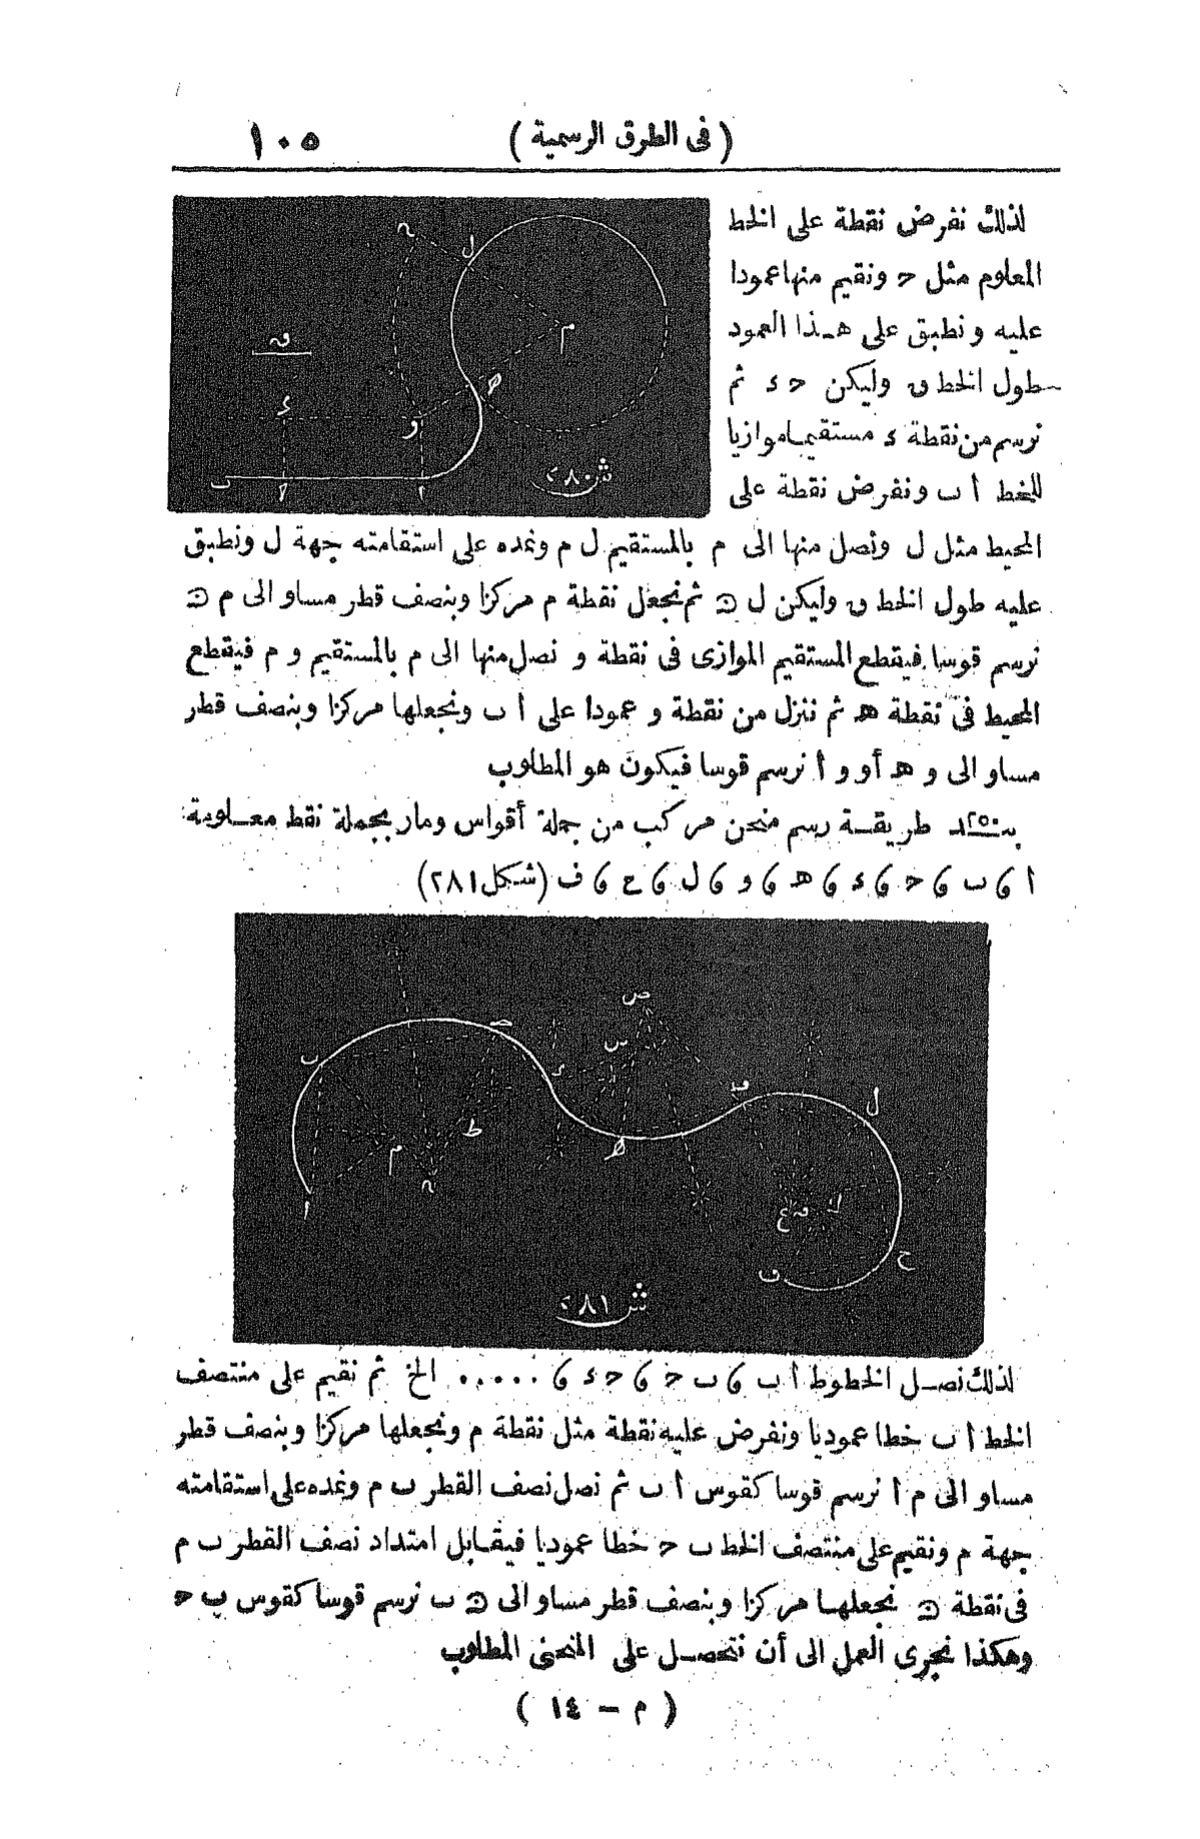 ( فى الطرق الرسمية ) ١٠٥
لذلك نفرض نقطة على الخط
المعلوم مثل ح ونقيم منها عمودا
عليه ونطبق على هذا العمود
طول الخط ق وليكن ح ء ثم
نرسم من نقطة ء مستقيما موازيا
للخط أ ب ونفرض نقطة على
ن
ل
م
ق
ء
ه
و
ب
ح
ا
ش ٢٨٠
المحيط مثل ل ونصل منها الى م بالمستقيم ل م ونمده على استقامته جهة ل ونطبق
عليه طول الخط ق وليكن ل ن ثم نجعل نقطة م مركزا وبنصف قطر مساو الى م ن
نرسم قوسا فيقطع المستقيم الموازى فى نقطة و نصل منها الى م بالمستقيم و م فيقطع
المحيط فى نقطة ه ثم ننزل من نقطة و عمودا على أ ب ونجعلها مركزا وبنصف قطر
مساو الى و ه أو و أ نرسم قوسا فيكون هو المطلوب
طريقة رسم منحن مركب من جملة أقواس ومار بجملة نقط معلومة
أ و ب و ح و ء و ه و و و ل و ح و ف (شكل ٢٨١)
ص
س
ب
ح
ء
ق
ل
ط
م
ن
ه
ا
ع
ق
ك
ح
ف
ش ٢٨١
لذلك نصل الخطوط أ ب و ب ح و ح ء و ...... الخ ثم نقيم على منتصف
الخط أ ب خطا عموديا ونفرض عليه نقطة مثل نقطة م ونجعلها مركزا وبنصف قطر
مساو الى م أ نرسم قوسا كقوس أ ب ثم نصل نصف القطر ب م ونمده على استقامته
جهة م ونقيم على منتصف الخط ب ح خطا عموديا فيقابل امتداد نصف القطر ب م
فى نقطة ن نجعلها مركزا وبنصف قطر مساو الى ن ب نرسم قوسا كقوس ب ح
وهكذا نجرى العمل الى أن نتحصل على المنحنى المطلوب
( م - ١٤ )